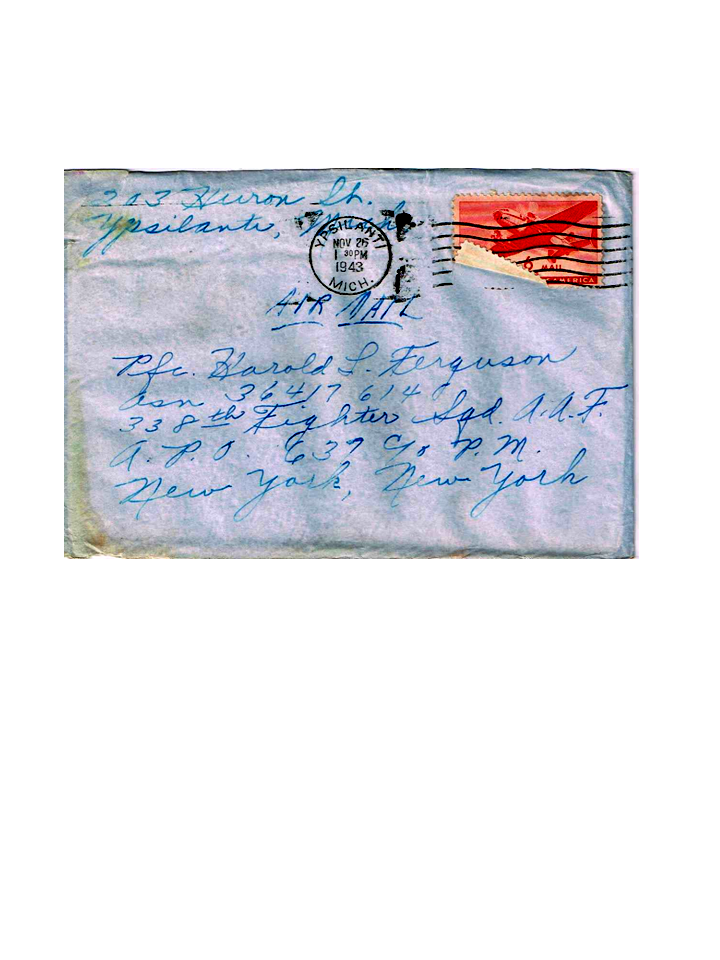 203 Huron St.
Ypsilanti, Mich.
YPSILANTI
NOV 26
1 30 PM
1943
MICH.
6¢ MAIL
AMERICA
AIR MAIL
Pfc. Harold L. Ferguson
asn 36417614
338th Fighter Sqd. A.A.F.
A.P.O. 637 c/o P.M.
New York, New York